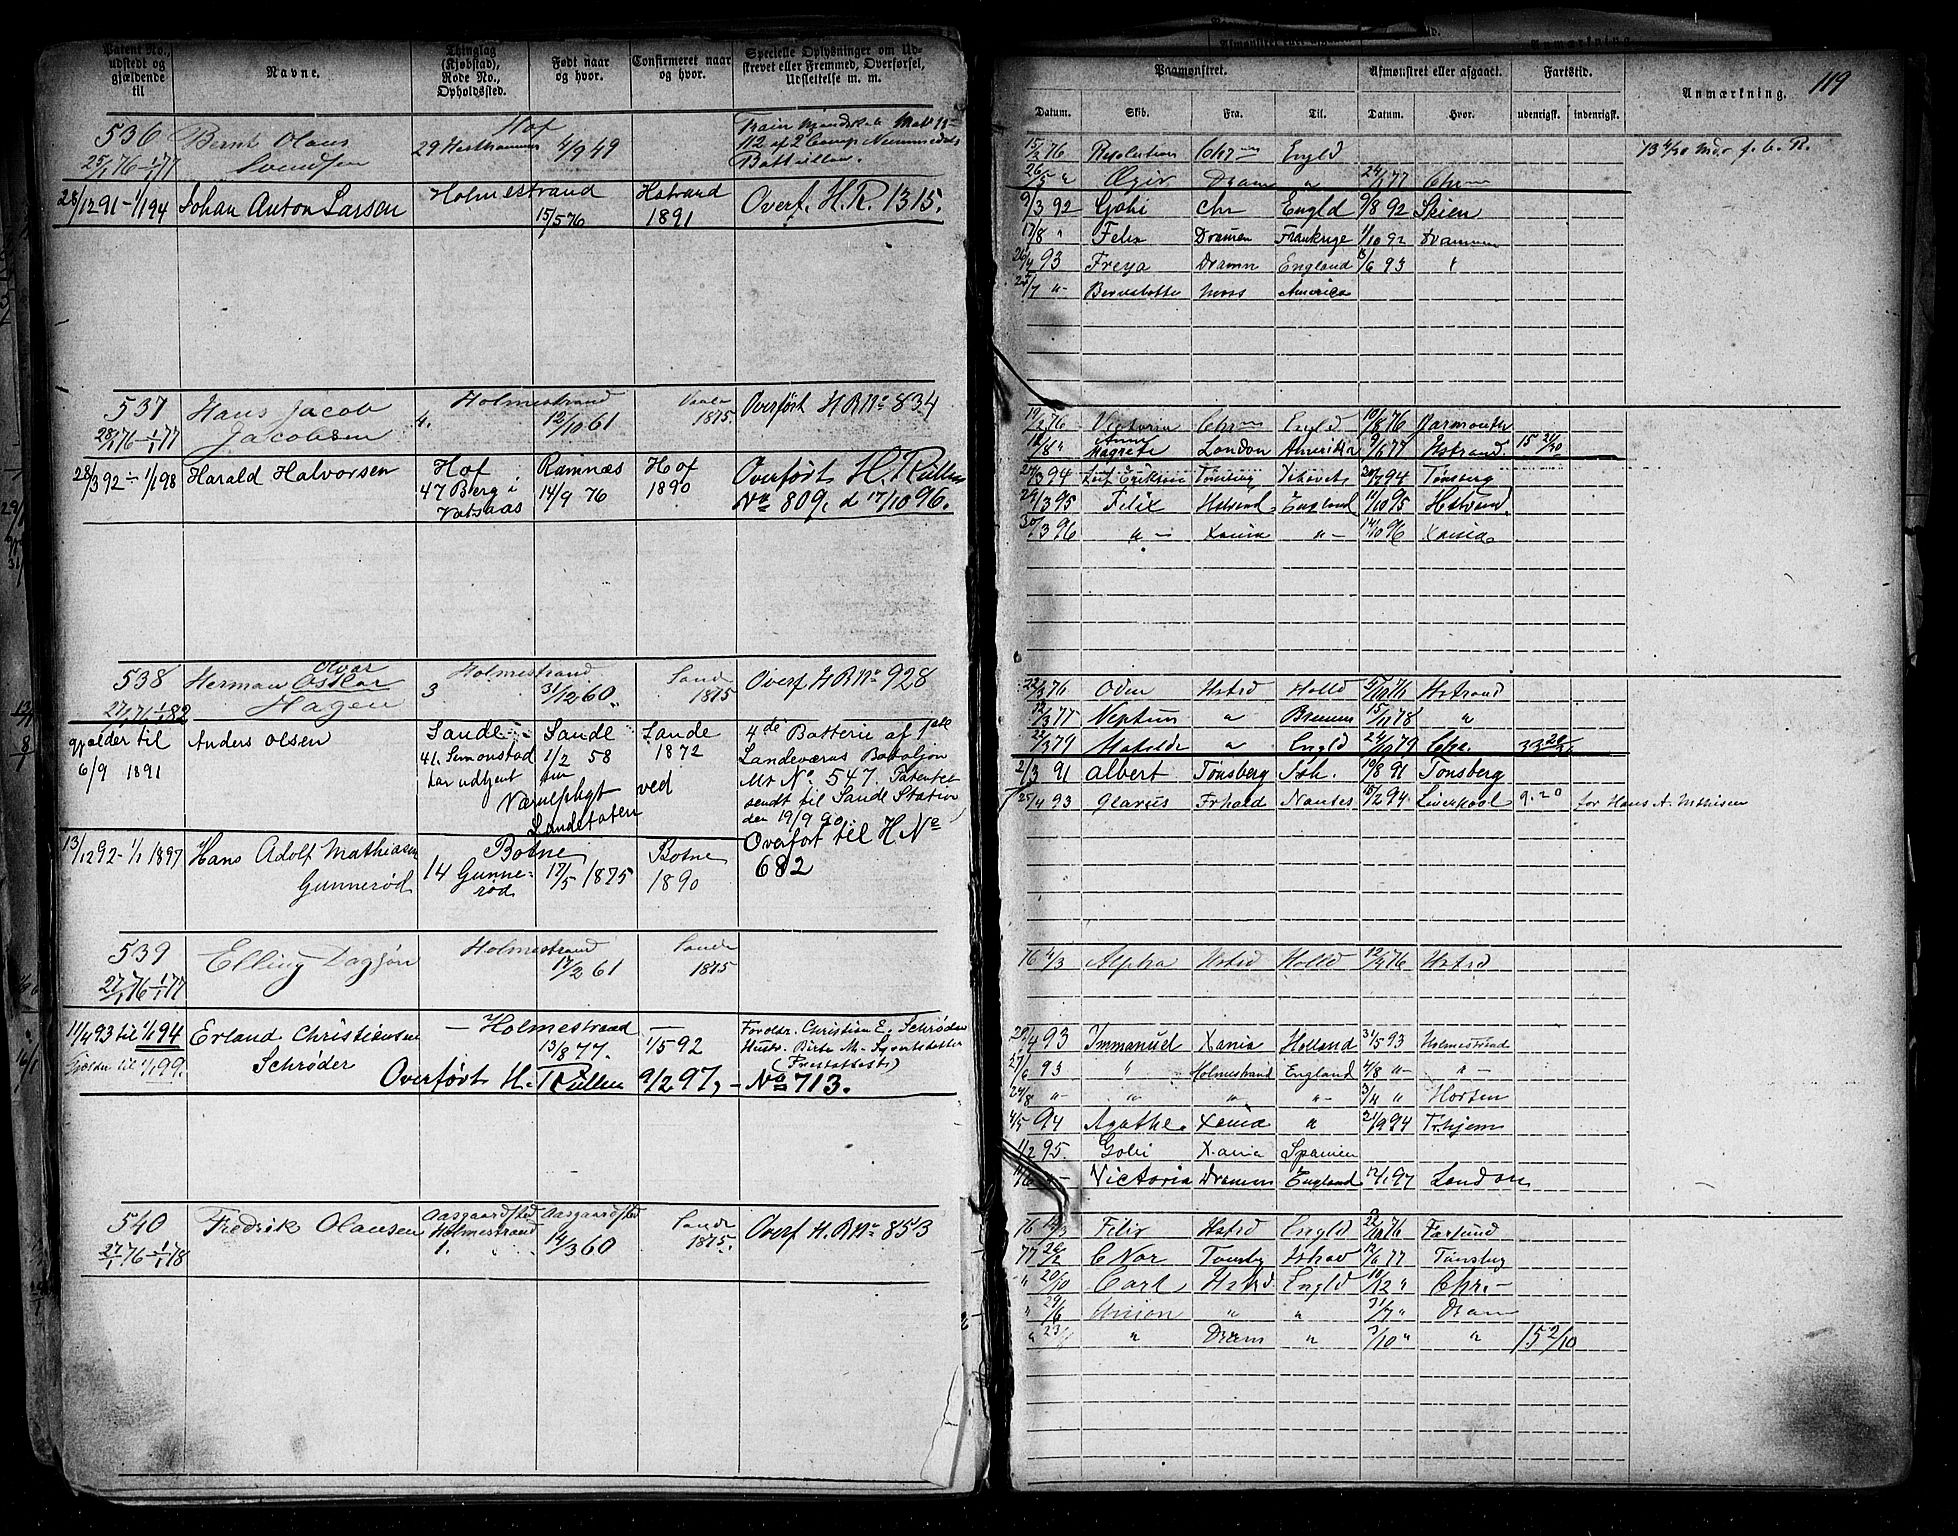 Patent No. udstedt og gjældende til
Navne.
Thinglag (Kjøbstad), Rode No., Opholdssted.
Født naar og hvor.
Confirmeret naar og hvor.
Specielle Oplysninger om Udstrevet eller Fremmed, Overførsel, Udslettelse m. m.
536 Bernt Olaus Hof
25/1 76 - 1/1 77 Svendsen 29 4/9 49
112 af 2 Comp Nummedals
Battaillon.
28/12 91 - 1/1 94 Johan Anton Larsen Holmestrand 15/5 76 Hstrand 1891 Overf. H.R. 1315.
537 Hans Jacob Holmestrand 1875. Overført H R No 834
28/1 76 - 1/1 77 Jacobsen 4. 12/10 61
28/3 92 - 1/1 98 Harald Halvorsen Hof Ramnæs Hof Overført H. Rullen
47 Berg i 14/9 76 1890 No 809, d 17/10 96.
Vatsaas
538 Herman Oskar Olvar Holmestrand Sande Overf H R No 928
27/1 76 1/1 82 Hagen 3 31/12 60. 1875
gjælder til Anders Olsen Sande Sande Sande 4de Batterie af 1ste
6/9 1891 41. Simonstad 1/2 58 1872 Landeværns Bataljon
har udtjent sin Værnepligt ved Mt No 547 Patentet
Landetaten sendt til Sande Station
den 19/9 90.
13/12 92 - 1/1 1897 Hans Adolf Mathiasen Botne Botne Overført til H No
Gunnerød 14 Gunnerød 17/5 1875 1890 682
539 Elling Dagføn Holmestrand Sande
27/1 76 - 1/1 77 17/2 61 1875
11/4 93 til 1/1 94 Erland Christiensen - Holmestrand - Foreldr. Christian E. Schrøder
Gjælder til 1/1 99. Schrøder 13/8 77. 1/5 92 Hustr. Birte M.
(Prestattest)
Overført H. Rullen 9/2 97, - No 713.
540 Fredrik Olausen Aasgaardsted Aasgaardsted Sande Overf H. R No 853
27/1 76 - 1/1 78 Holmestrand 1. 14/3 60 1875.
119
Paamønstret.
Afmønstret eller afgaaet.
Fartstid.
Anmærkning.
Datum. Skib. Fra. Til. Datum. Hvor. udenrigsk. indenrigsk.
15/2 76 Revolution Chr Engld
26/5 " Ægir Dram " 24/1 77 Chr
9/3 92 Gobi Chr Engld 9/8 92 Skien
17/8 " Felix Dramen Frankrige 11/10 92 Drammen
26/4 93 Freya Dramn England 3/6 93 "
25/7 " Moss Amerika
14/2 76 Victoria Chr Engld 10/8 76 Yarmouth
Anne Magrete London Amerika 9/6 77 Hstrand 15 21/30
27/3 94 Leif Erikson Tønsberg Ishavet 30/7 94 Tønsberg
29/3 95 Felix Hstrand England 11/10 95 Hstrand.
30/3 96 " - Xania " - 14/10 96 Xania
22/3 76 Oden Hstrd Holld Hstrand
12/3 77 Neptun " Bremen 15/11 78 "
22/3 79 Matilde " Engld 24/10 79 Chr.
2/3 91 Albert Tønsberg 19/8 91 Tonsberg
25/4 93 Glarus Frhald Nantes 15/2 94. Liverpool 9. 20 for Hans A. Mathisen
76 4/3 Alpha Hstrd Holld 12/4 76 Hstrd
29/4 93 Immanuel Xania Holland 31/5 93 Holmestrand
27/6 93 " Holmestrand England 4/8 " - " -
24/8 " - " - " " - 3/11 " Horten
4/5 94 Agathe. Xania " 21/9 94 Trhjem
11/2 95. Gobi Xania Spanien
Victoria Dramen England 12/1 97 London
76 14/3 Felix Hstrd Engld 22/10 76 Farsund
77 26/2 C Nor Tonsbg Ishav 12/6 77 Tønsbrg
" 20/10 Carl Hstrd Engld 10/12 " Chr. -
" 29/6 Union " " 31/7 " Dram
" " Dram " 3/10 " " 15 2/10